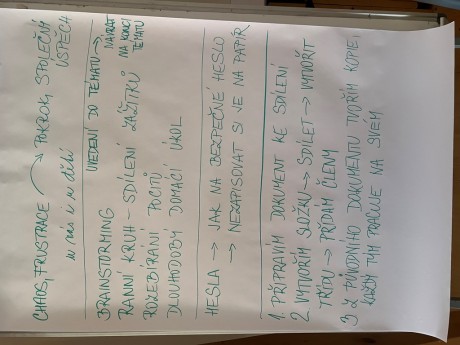 CHAOS, FRUSTRACE → POKROK, SPOLEČNÝ ÚSPĚCH
u nás i u dětí
UVEDENÍ DO TÉMATU → NÁVRAT NA KONCI TÉMATU
BRAINSTORMING
RANNÍ KRUH - SDÍLENÍ ZÁŽITKŮ
ROZEBÍRÁNÍ POCITŮ
DLOUHODOBÝ DOMÁCÍ ÚKOL
HESLA → JAK NA BEZPEČNÉ HESLO
→ NEZAPISOVAT SI JE NA PAPÍR
1. PŘIPRAVÍM DOKUMENT KE SDÍLENÍ
2 VYTVOŘÍM SLOŽKU → SDÍLET → VYTVOŘIT
TŘÍDU → PŘIDÁM ČLENY
3 Z PŮVODNÍHO DOKUMENTU TVOŘÍM KOPIE,
KAŽDÝ TÝM PRACUJE NA SVÉM